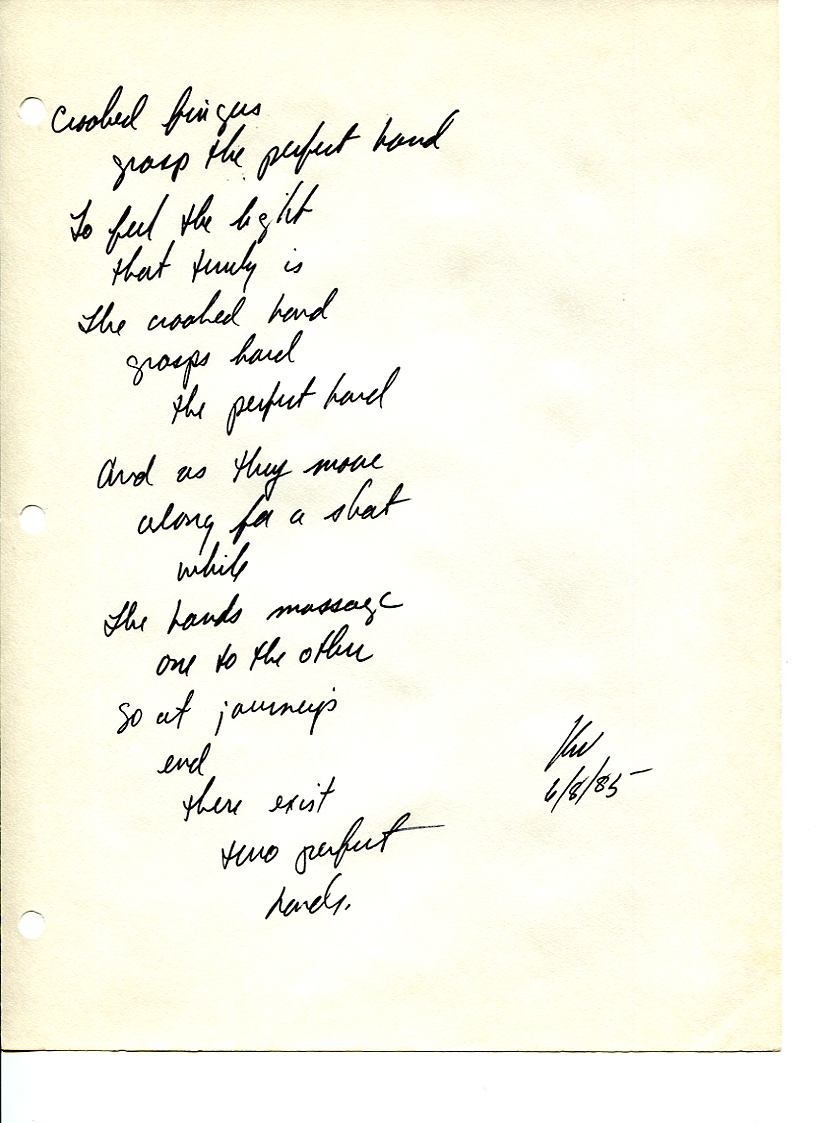 Crooked fingers
grasp the perfect hand
To feel the light
that truly is
The crooked hand
grasps hard
the perfect hand
And as they move
along for a short
while
The hands massage
one to the other
So at journey's
end
there exist
two perfect
hands.
6/8/85